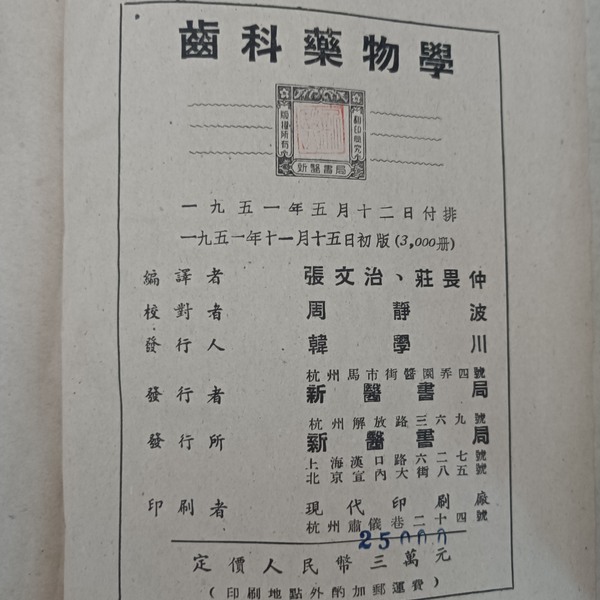 齒科藥物學
版權所有
翻印必究
新醫書局
一九五一年五月十二日付排
一九五一年十一月十五日初版(3,000册)
編譯者 張文治、莊畏仲
校對者 周靜波
發行人 韓學川
杭州馬市街醬園弄四號
發行者 新醫書局
杭州解放路三六九號
發行所 新醫書局
上海漢口路六二七號
北京宣內大街八五號
印刷者 現代印刷廠
杭州肅儀巷二十四號
25000
定價人民幣三萬元
(印刷地點外酌加郵運費)